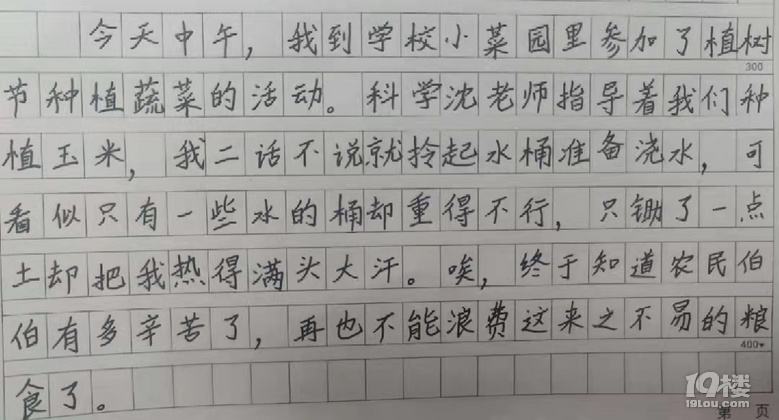 今天中午，我到学校小菜园里参加了植树
300
节种植蔬菜的活动。科学沈老师指导着我们种
植玉米，我二话不说就拎起水桶准备浇水，可
看似只有一些水的桶却重得不行，只锄了一点
土却把我热得满头大汗。唉，终于知道农民伯
伯有多辛苦了，再也不能浪费这来之不易的粮
400
食了。
19楼
19lou.com
第 页